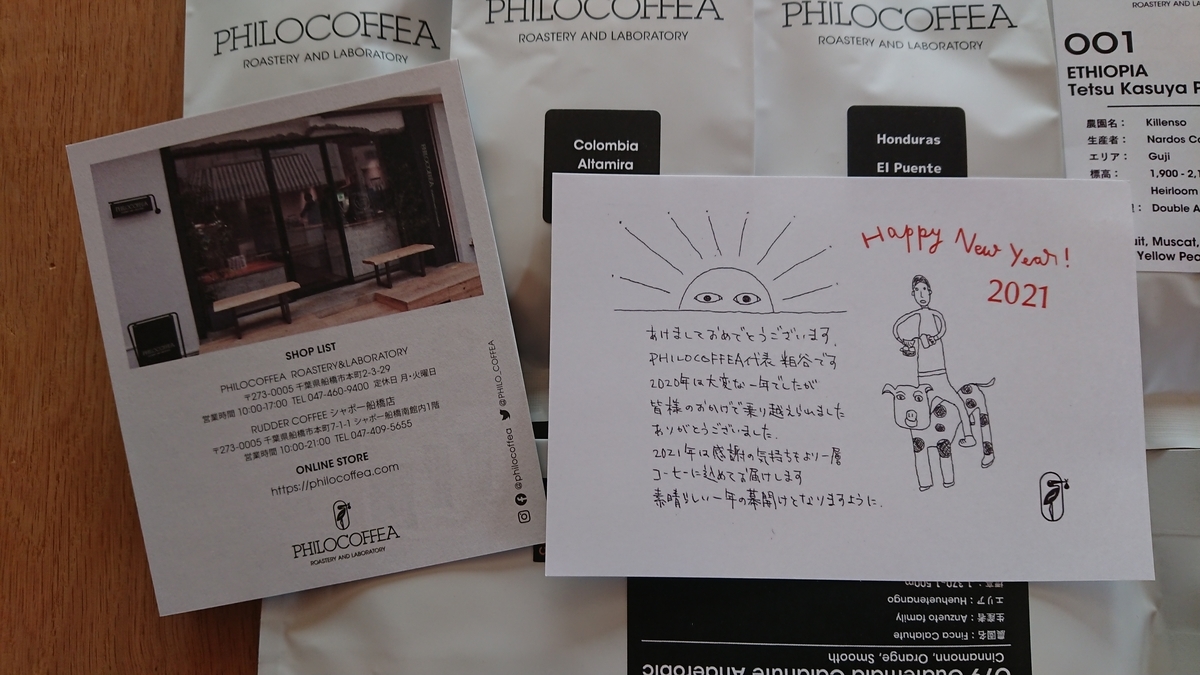 PHILOCOFFEA
ROASTERY AND LABORATORY
PHILOCOFFEA
ROASTERY AND LABORATORY
Colombia
Altamira
PHILOCOFFEA
ROASTERY AND LABORATORY
Honduras
El Puente
ROASTERY AND LABORATORY
001
ETHIOPIA
Tetsu Kasuya
農園名： Killenso
生産者： Nardos
エリア： Guji
標高： 1,900 -
Heirloom
Double
Muscat,
Yellow
SHOP LIST
PHILOCOFFEA ROASTERY&LABORATORY
〒273-0005 千葉県船橋市本町2-3-29
営業時間 10:00-17:00 TEL 047-460-9400 定休日 月・火曜日
RUDDER COFFEE シャポー船橋店
〒273-0005 千葉県船橋市本町7-1-1 シャポー船橋南館内1階
営業時間 10:00-21:00 TEL 047-409-5655
ONLINE STORE
https://philocoffea.com
PHILOCOFFEA
ROASTERY AND LABORATORY
@philocoffea
@PHILO_COFFEA
Happy New Year!
2021
あけましておめでとうございます。
PHILOCOFFEA代表 粕谷です
2020年は大変な一年でしたが
皆様のおかげで乗り越えられました
ありがとうございました。
2021年は感謝の気持ちをより一層
コーヒーに込めてお届けします
素晴らしい一年の幕開けとなりますように。
079 Guatemala Calahute Anaerobic
Cinnamonn, Orange, Smooth
農園名：Finca Calahute
生産者：Anzueto family
エリア：Huehuetenango